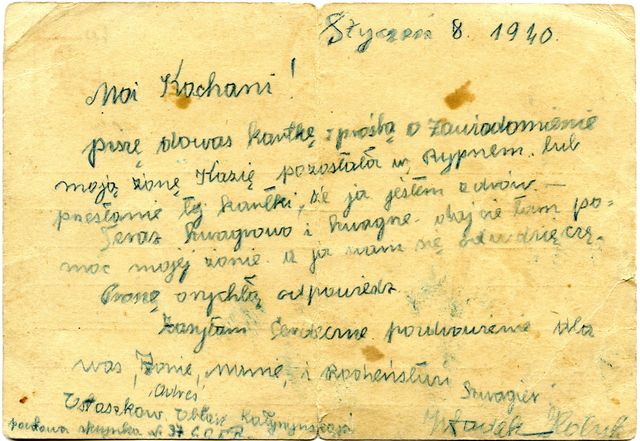 Styczeń 8. 1940.
Moi Kochani!
piszę dowas kartkę z prośbą o Zawiadomienie
moją żonę Kazię pozostała w Rypnem. lub
przesłanie tej kartki, że ja jestem zdrów. —
Teraz Szwagrowo i szwagrze. dajcie tam po-
moc mojej żonie a ja wam się odwdzięczę.
Proszę orychłą odpowiedz
Zasyłam Serdeczne pozdrowienie dla
was, Żonie, Mamie, i Rocheństwu
Szwagier
Adres
Ostaszkow Obłaść Kalynynskaja
pocztowa skrynka N. 37 C.C.C.P. Władek